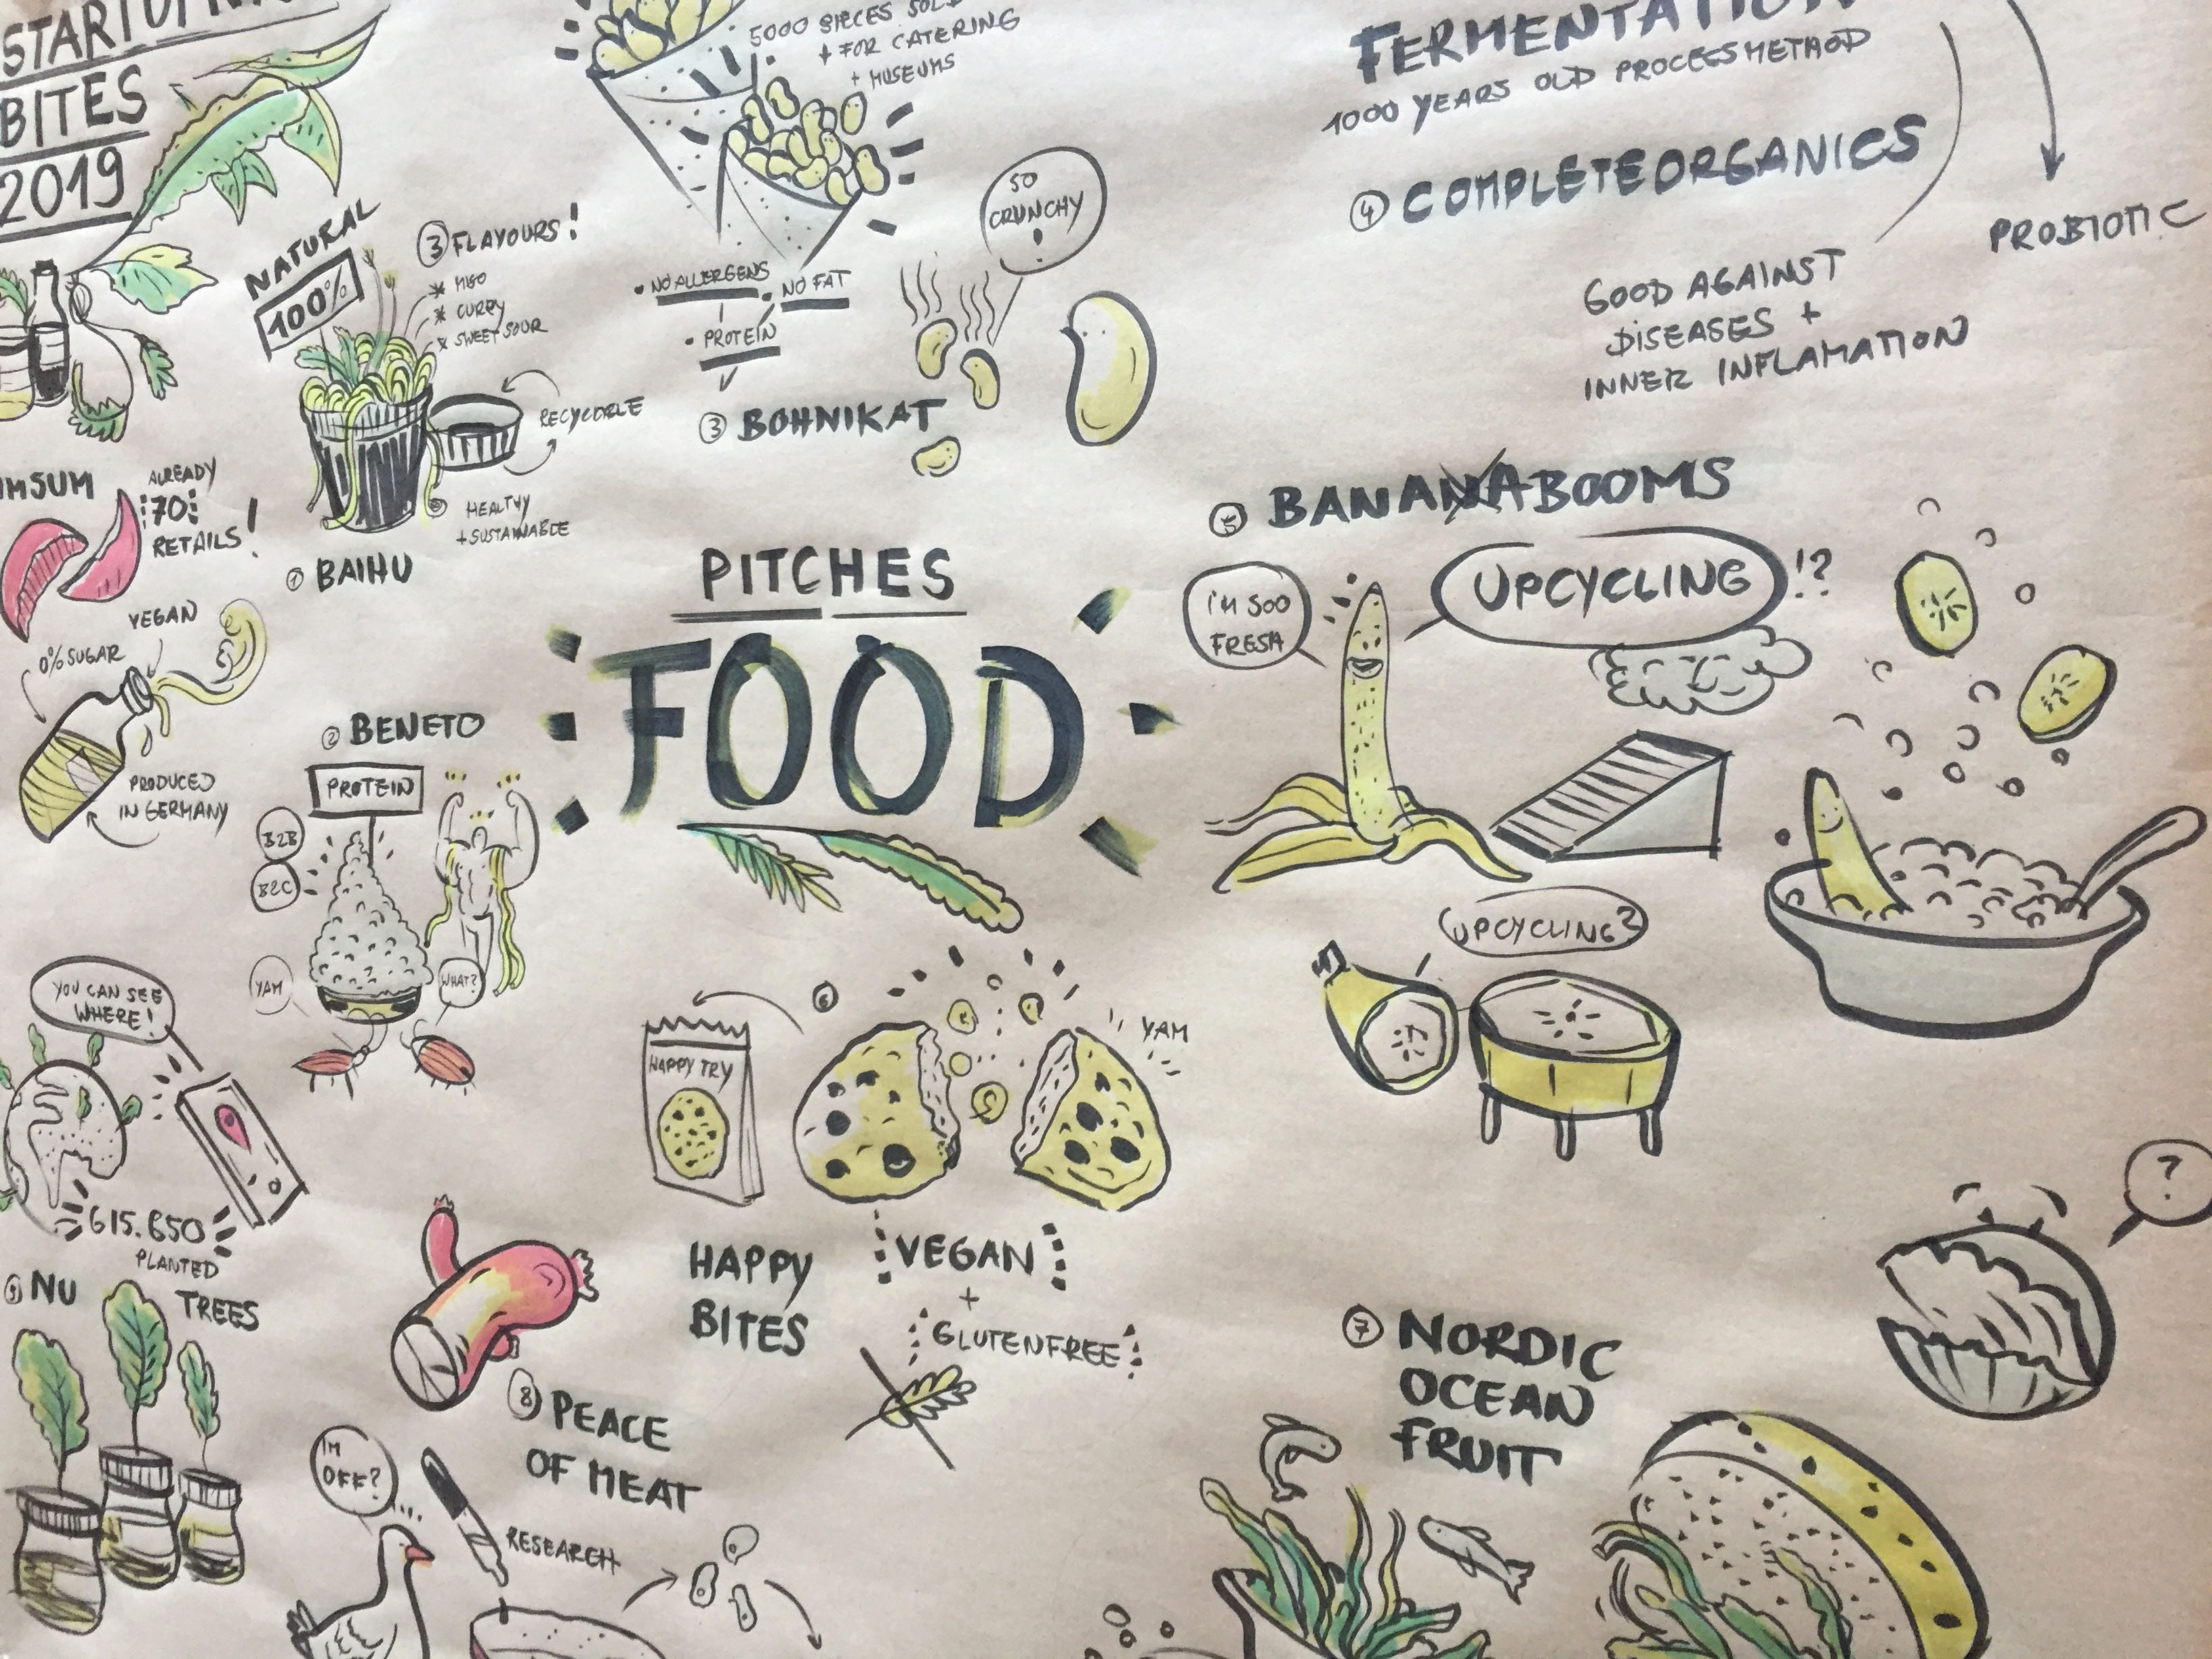 BITES
2019
NATURAL
100%
③ FLAYOURS!
* MISO
* CURRY
* SWEET SOUR
RECYCABLE
HEALTHY
+ SUSTAINABLE
① BAIHU
ALREADY
70
RETAILS!
VEGAN
0% SUGAR
PRODUCED
IN GERMANY
5000 PIECES
+ FOR CATERING
+ MUSEUMS
SO
CRUNCHY
!
• NO ALLERGENS
• NO FAT
• PROTEIN
③ BOHNIKAT
FERMENTATION
1000 YEARS OLD PROCESSMETHOD
④ COMPLETEORGANICS
PROBIOTIC
GOOD AGAINST
DISEASES +
INNER INFLAMATION
PITCHES
FOOD
② BENETO
PROTEIN
B2B
B2C
YAM
WHAT?
⑤ BANANABOOMS
I'M SOO
FRESH
UPCYCLING!?
UPCYCLING?
YOU CAN SEE
WHERE!
615.650
PLANTED
TREES
⑨ NU
⑥
HAPPY TRY
YAM
HAPPY
BITES
VEGAN
+
GLUTENFREE
⑧ PEACE
OF MEAT
I'M
OFF?
RESEARCH
?
⑦ NORDIC
OCEAN
FRUIT